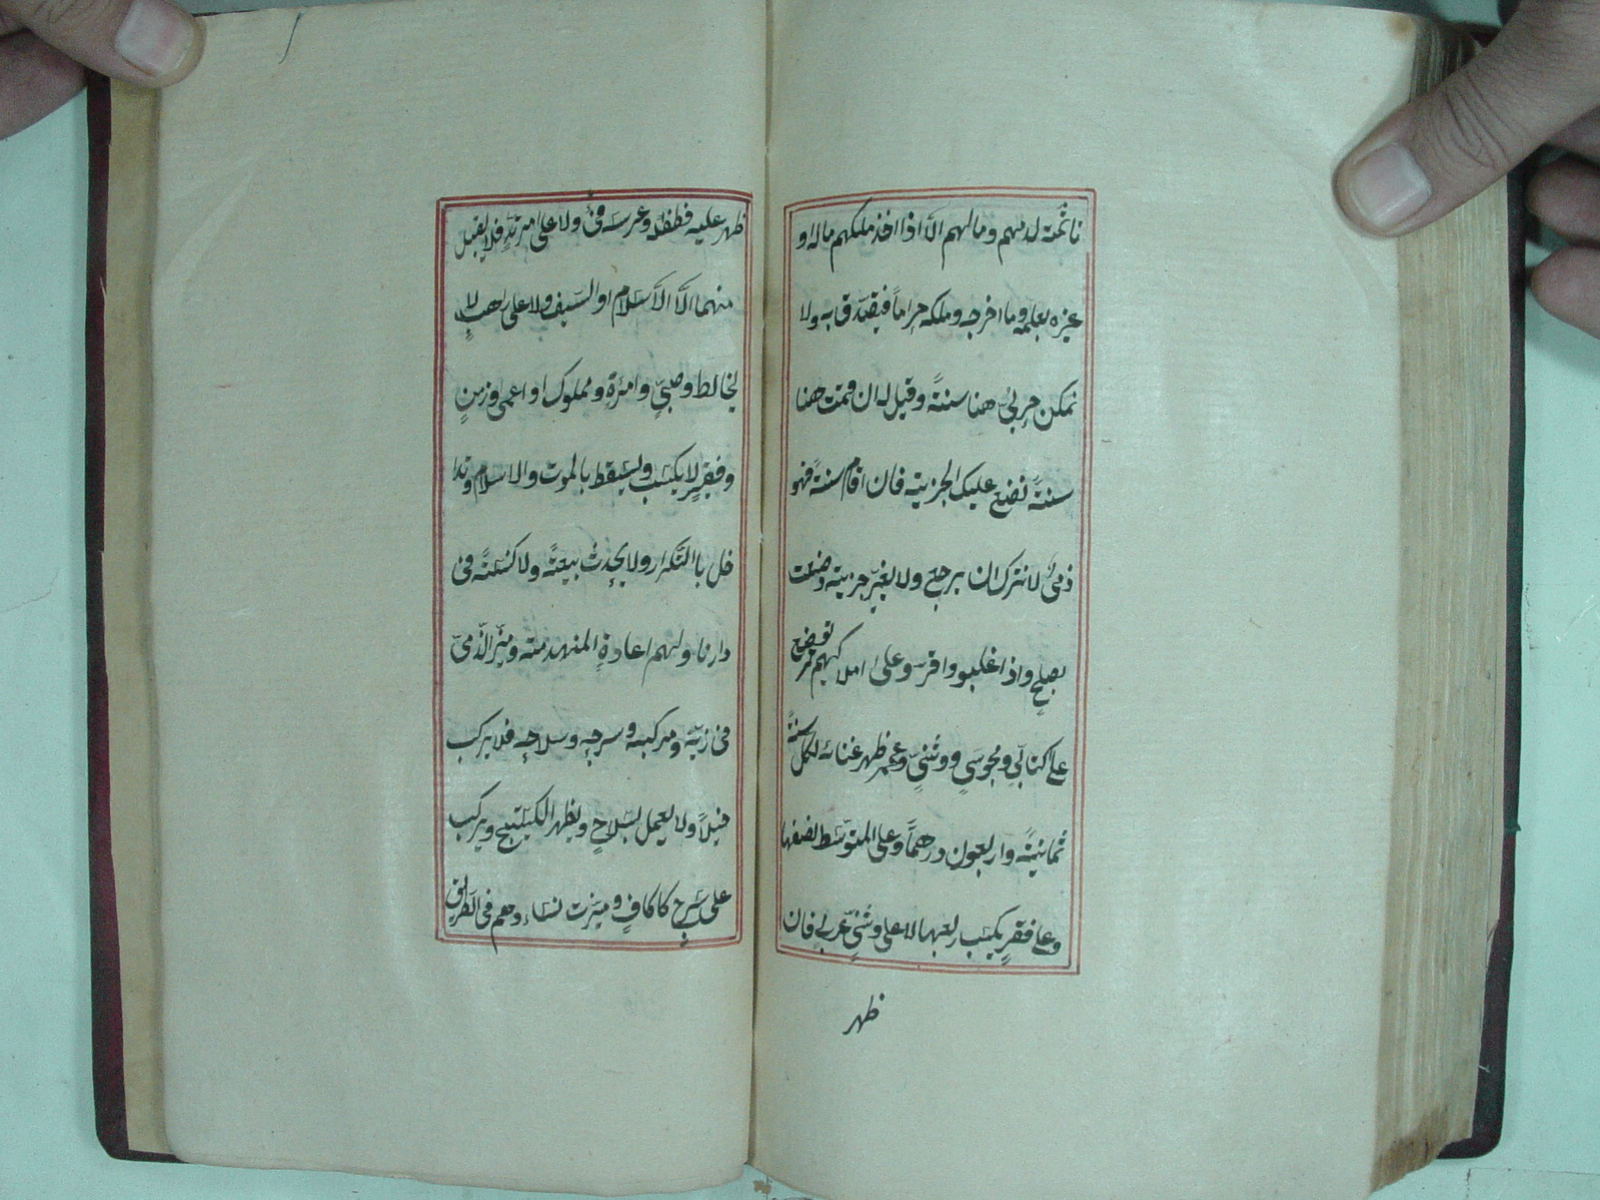 ثمّة لدمهم ومالهم الّا اذا اخذ ملكهم ماله او
غيره بعلمه وما اخرجه وملكه حراماً فيتصدّق به ولا
نمكن حربيٌّ هنا سنةً وقيل له ان قمت هنا
سنةً نضع عليك الجزية فان اقام سنةً فهو
ذمّىٌّ لا نترك ان يرجع ولا يغيّر جزية وضعت
بصلحٍ واذا غلبوا واقرّوا على املاكهم توضع
على كتابىٍّ ومجوسىٍّ ووثنىٍّ عجمٍ ظهر غناه لكل سنةً
ثمانيةً واربعون درهماً وعلى المتوسّط نصفها
وعلى فقيرٍ يكسب ربعها لا على وثنىٍّ عربىٍّ فان
ظهر
ظهر عليه فطفله وعرسه فئٌ ولا على مرتدٍّ فلا يقبل
منهما الّا الاسلام او السّيف ولا على راهبٍ لا
يخالط وصبىٍّ وامرءةٍ ومملوكٍ او اعمى وزمنٍ
وفقيرٍ لا يكسب ويسقط بالموت والاسلام وتدا
خل باالتّكرار ولا يحدث بيعةً ولا كنيسةً فى
دارنا ولهم اعادة المنهدمة وميّز الذّمىّ
فى زيّه ومركبه وسرجه وسلاحه فلا يركب
خيلاً ولا يعمل بسلاحٍ ويظهر الكستيج ويركب
على سرجٍ كاكافٍ وميزت نساءهم فى الطّريق